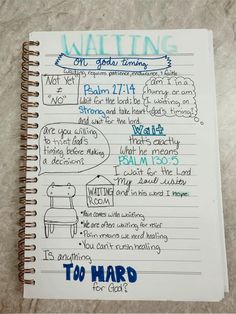 WAITING
on gods timing
Waiting requires patience, endurance, & faith
"Not Yet"
≠
"NO"
Psalm 27:14
Wait for the lord; be
strong and take heart
And wait for the lord.
Am I in a
hurry or am
I waiting on
God's timing?
Are you willing
to trust God's
timing before Making
a decision?
Wait
that's exactly
what he means
PSALM 130:5
I wait for the Lord
My soul waits
and in his word I hope.
WAITING
ROOM
• Pain comes with waiting
• We are often waiting for relief
• Pain means we need healing
• You can't rush healing
Is anything
TOO HARD
for God?